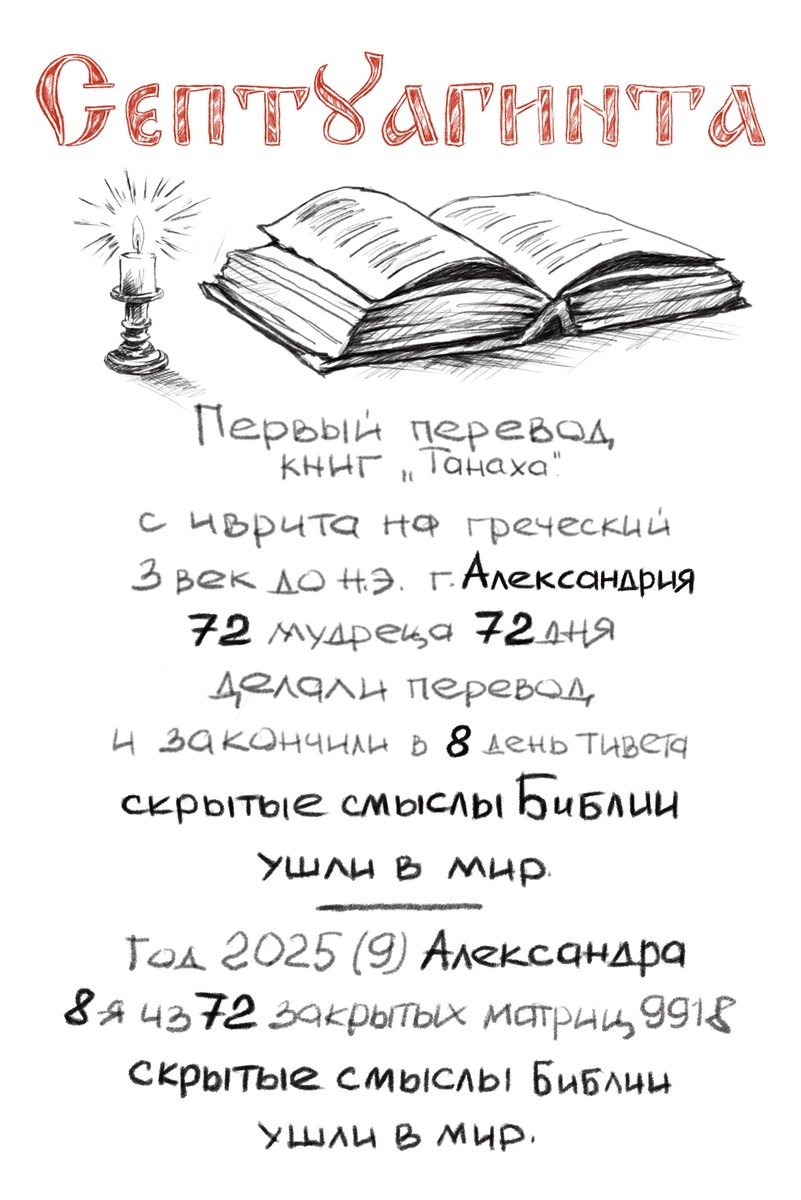 Септуагинта
Первый перевод
книг „Танаха"
с иврита на греческий
3 век до н.э. г. Александрия
72 мудреца 72 дня
делали перевод
и закончили в 8 день тивета
скрытые смыслы Библии
ушли в мир.
Год 2025 (9) Александра
8-я из 72 закрытых матриц 9918
скрытые смыслы Библии
ушли в мир.